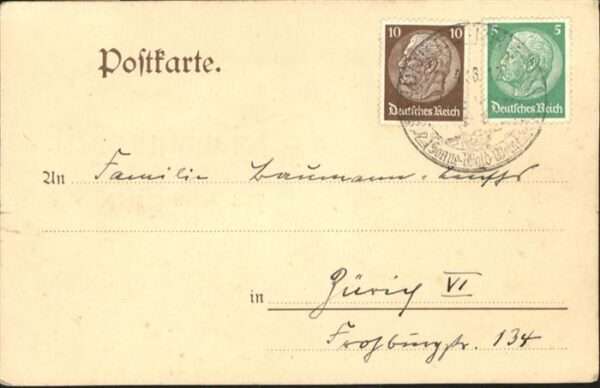 10
5 5
Postkarte.
Deutsches Reich
Deutsches Reich
Sonne Wald
An Familie Baumann-
in Zürich VI
Frohburgstr. 134